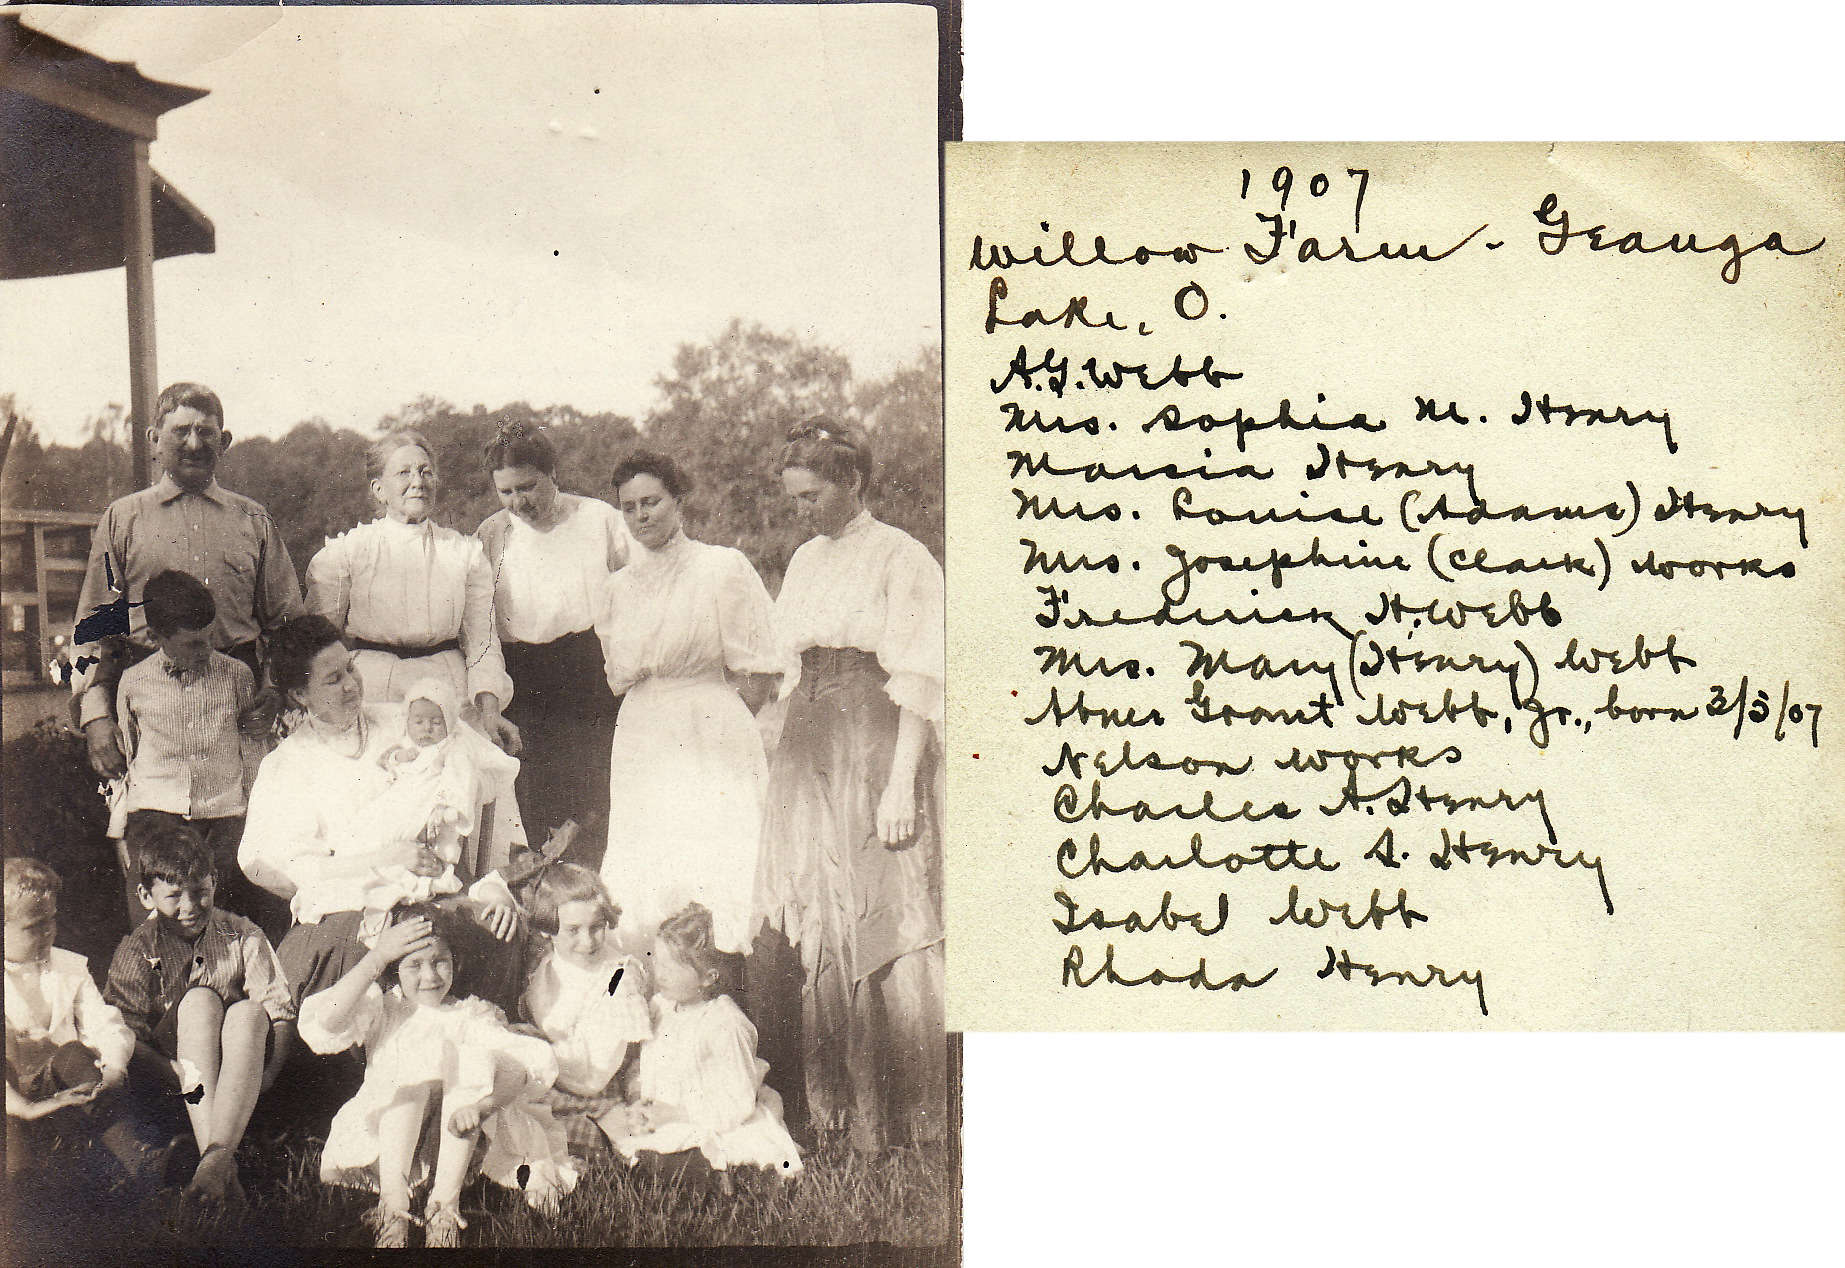 1907
Willow Farm - Geauga
Lake, O.
A.G. Webb
Mrs. Sophia M. Henry
Marcia Henry
Mrs. Louise (Adams) Henry
Mrs. Josephine (Clark) Works
Frederick H. Webb
Mrs. Mary (Henry) Webb
Abner Grant Webb, Jr., born 3/3/07
Nelson Works
Charles A. Henry
Charlotte A. Henry
Isabel Webb
Rhoda Henry